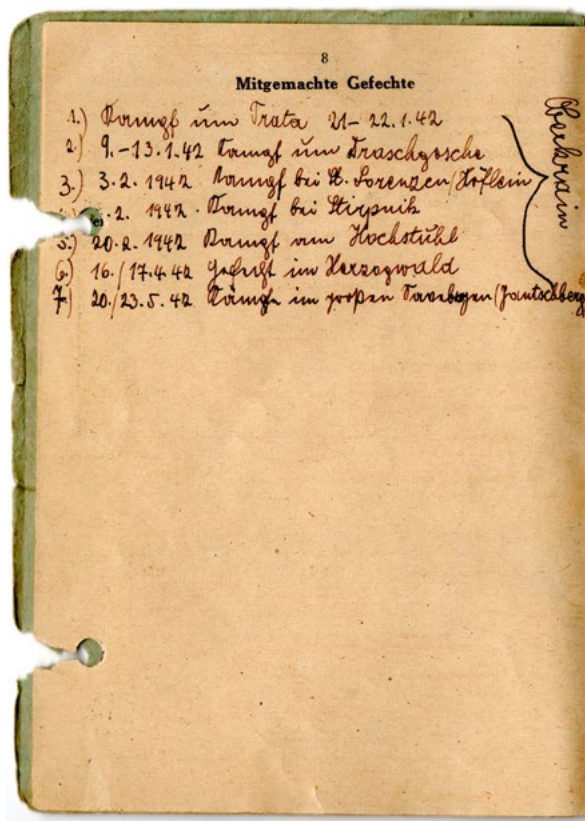 8
Mitgemachte Gefechte
1.) Kampf um Trata 21- 22.1.42
2.) 9.-13.1.42 Kampf um Draschgosche
3.) 3.2. 1942 Kampf bei St. Lorenzen/Höflein
.2. 1942 Kampf bei Stirpnik
5.) 20.2. 1942 Kampf am Hochstuhl
6.) 16./17.4.42 Gefecht im Herzogwald
7.) 20./23.5.42 Kämpfe im großen Savebogen (Jantschberg
Oberkrain